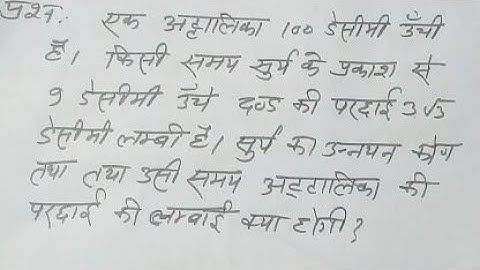 प्रश्न: एक अट्टालिका 100 डेसीमी ऊँची
है। किसी समय सुर्य के प्रकाश से
9 डेसीमी ऊँचे दण्ड की परदाई 3√3
डेसीमी लम्बी है। सुर्य का उन्नयन कोण
तथा तथा उसी समय अट्टालिका की
परदाई की लम्बाई क्या होगी?